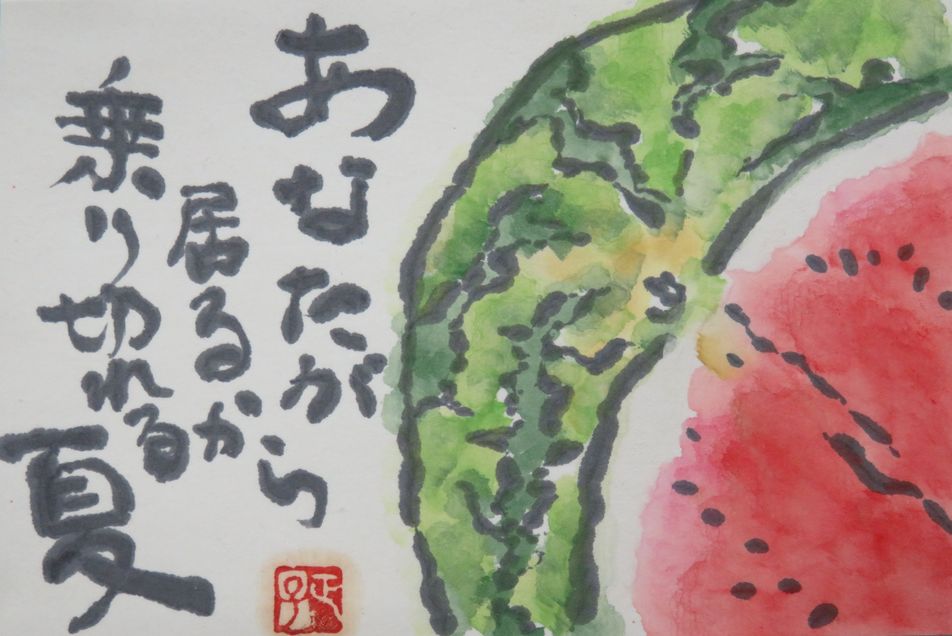 あなたが
居るから
乗り切れる
夏